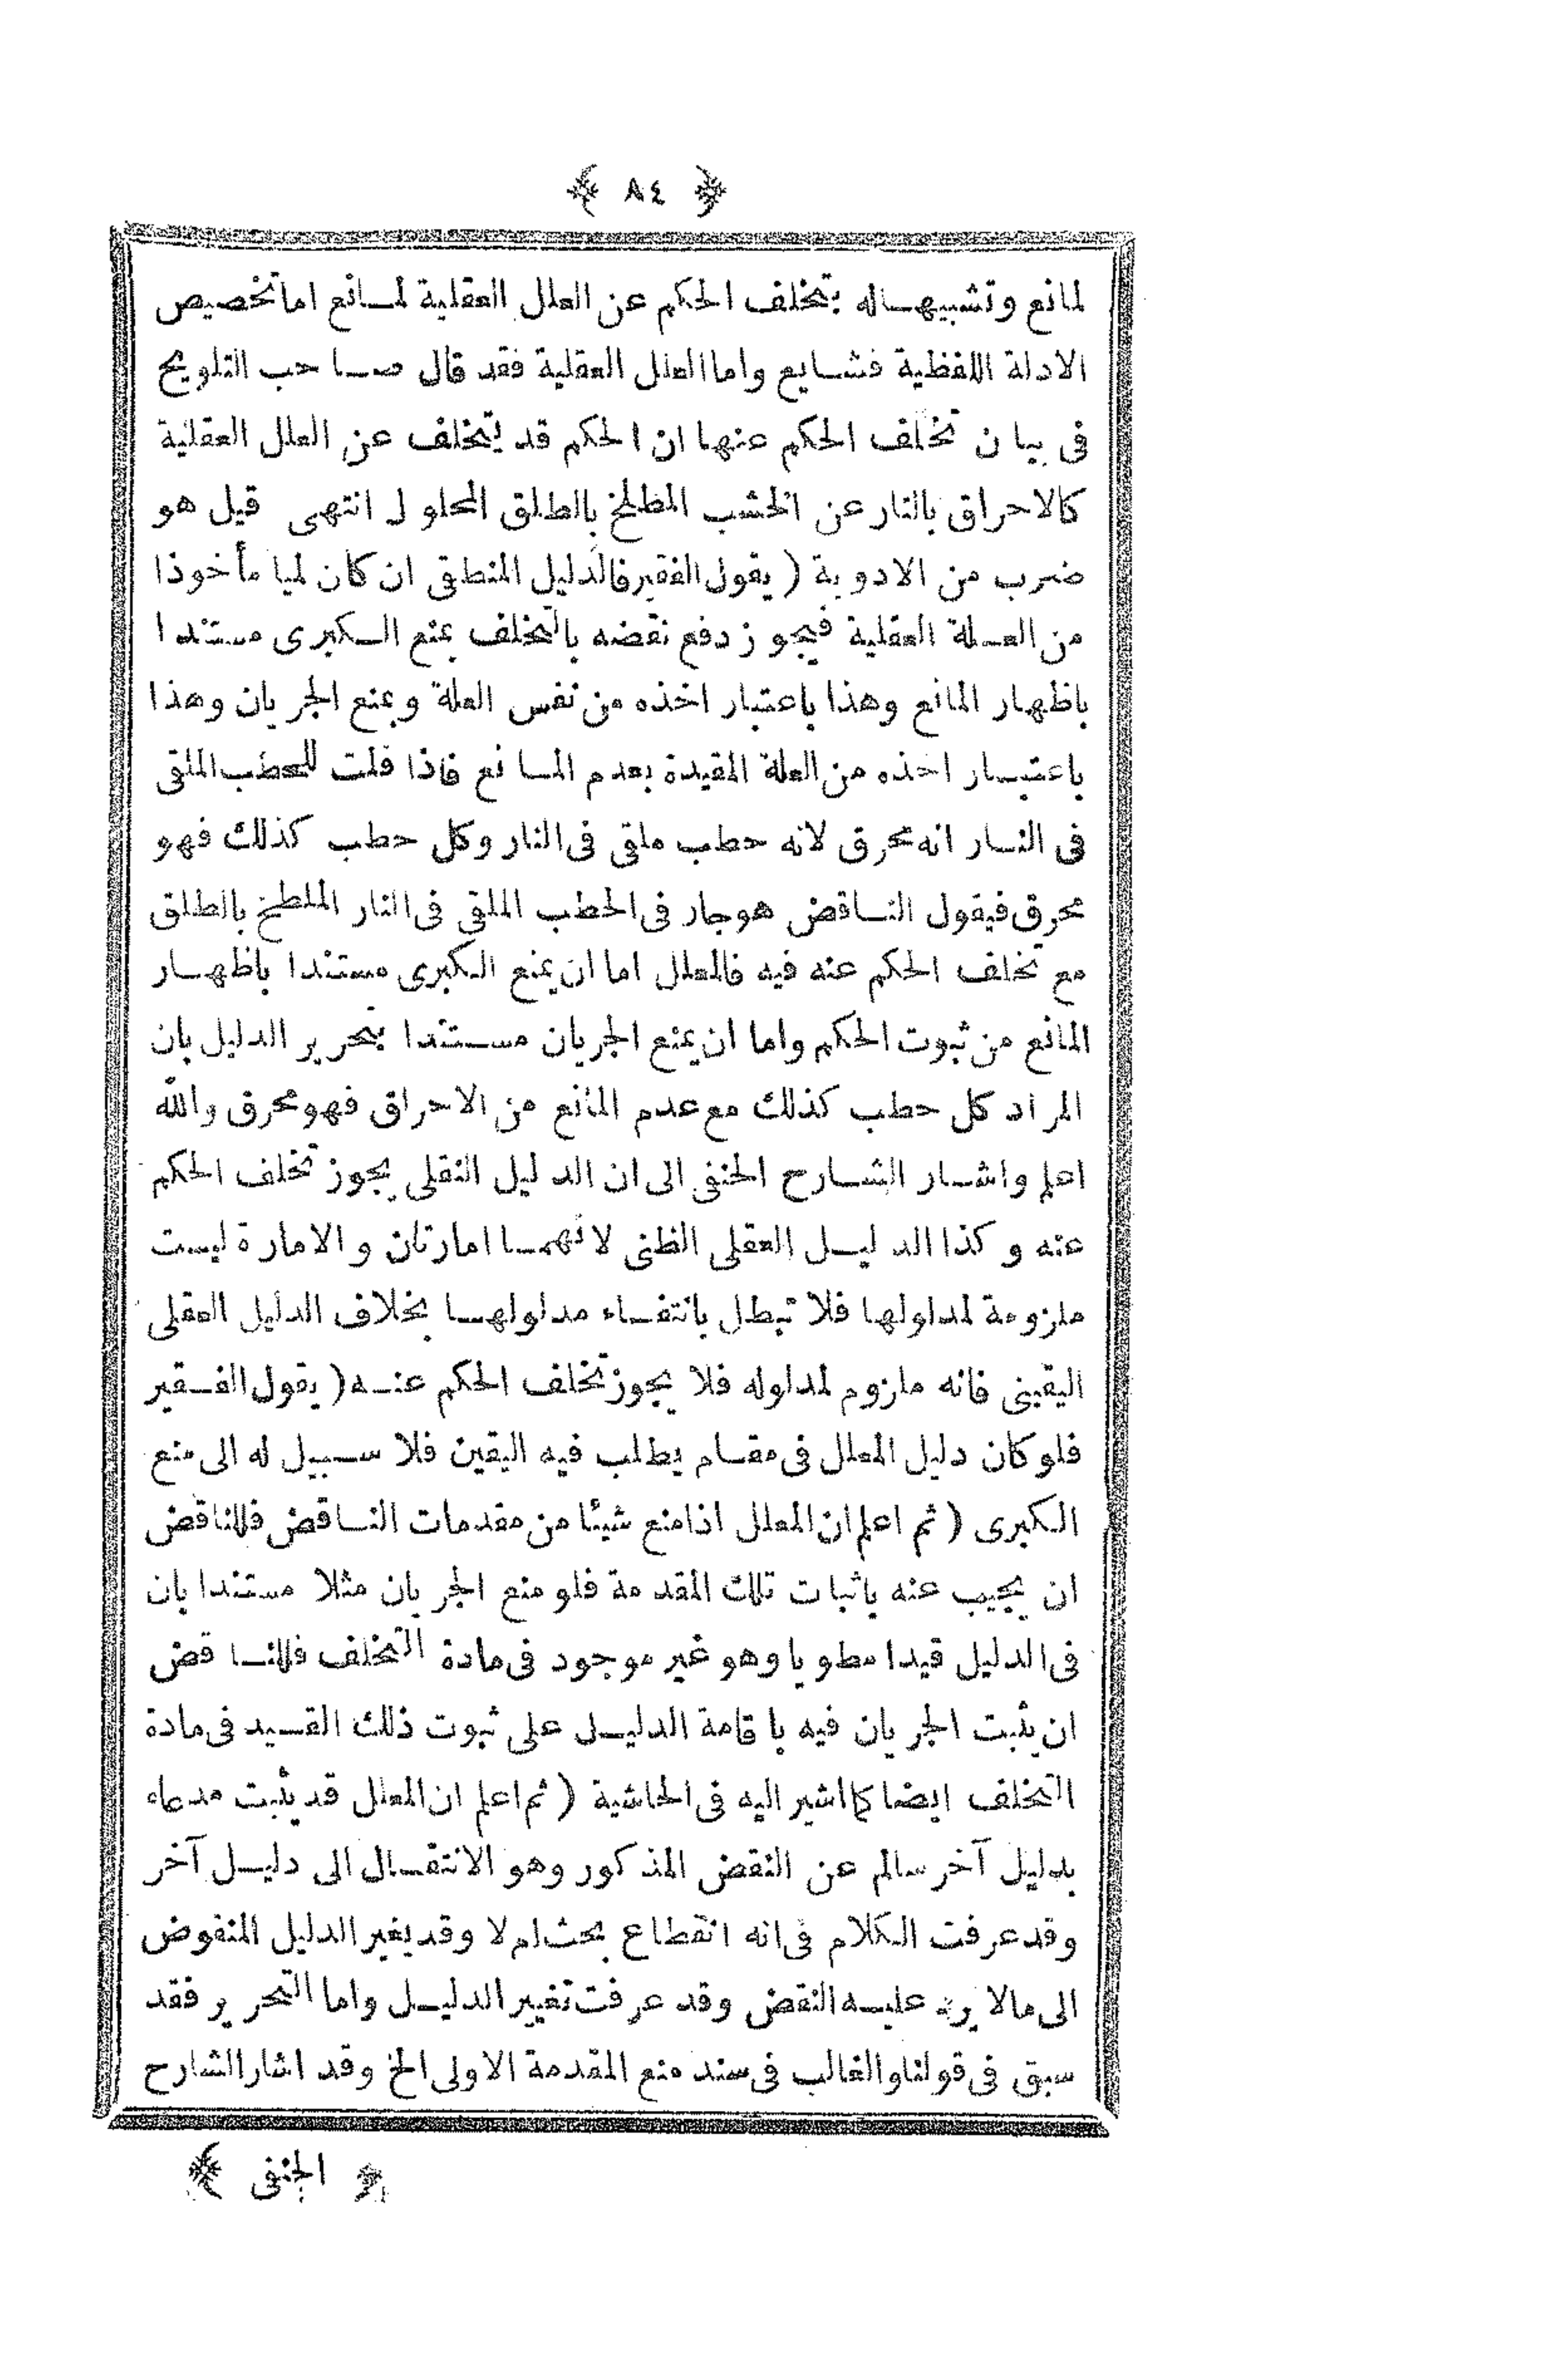 ﴿ ٨٤ ﴾
لمانع وتشبيهاله بتخلف الحكم عن العلل العقلية لمانع اما تخصيص
الادلة اللفظية فشايع واما العلل العقلية فقد قال صاحب التلويح
فى بيان تخلف الحكم عنها ان الحكم قد يتخلف عن العلل العقلية
كالاحراق بالنار عن الخشب المطلخ بالطلق المحلول انتهى قيل هو
ضرب من الادوية ( يقول الفقير فالدليل المنطقى ان كان لميا مأخوذا
من العلة العقلية فيجوز دفع نقضه بالتخلف بمنع الكبرى مستندا
باظهار المانع وهذا باعتبار اخذه من نفس العلة وبمنع الجريان وهذا
باعتبار اخذه من العلة المقيدة بعدم المانع فاذا قلت للحطب الملقى
فى النار انه محرق لانه حطب ملقى فى النار وكل حطب كذلك فهو
محرق فيقول الناقض هو جار فى الحطب الملقى فى النار الملطخ بالطلق
مع تخلف الحكم عنه فيه فالمعلل اما ان يمنع الكبرى مستندا باظهار
المانع من ثبوت الحكم واما ان يمنع الجريان مستندا بتحرير الدليل بان
المراد كل حطب كذلك مع عدم المانع من الاحراق فهو محرق والله
اعلم واشار الشارح الحنفى الى ان الدليل النقلى يجوز تخلف الحكم
عنه وكذا الدليل العقلى الظنى لانهما امارتان والامارة ليست
ملزومة لمدلولها فلا تبطل بانتفاء مدلولها بخلاف الدليل العقلى
اليقينى فانه ملزوم لمدلوله فلا يجوز تخلف الحكم عنه ( يقول الفقير
فلو كان دليل المعلل فى مقام يطلب فيه اليقين فلا سبيل له الى منع
الكبرى ( ثم اعلم ان المعلل اذا منع شيئا من مقدمات الناقض فللناقض
ان يجيب عنه باثبات تلك المقدمة فلو منع الجريان مثلا مستندا بان
فى الدليل قيدا مطويا وهو غير موجود فى مادة التخلف فللناقض
ان يثبت الجريان فيه باقامة الدليل على ثبوت ذلك القيد فى مادة
التخلف ايضا كما اشير اليه فى الحاشية ( ثم اعلم ان المعلل قد يثبت مدعاه
بدليل آخر سالم عن النقض المذكور وهو الانتقال الى دليل آخر
وقد عرفت الكلام فى انه انقطاع بحث ام لا وقد يغير الدليل المنقوض
الى مالا يرد عليه النقض وقد عرفت تغيير الدليل واما التحرير فقد
سبق فى قولنا والغالب فى سند منع المقدمة الاولى الخ وقد اشار الشارح
﴿ الحنفى ﴾